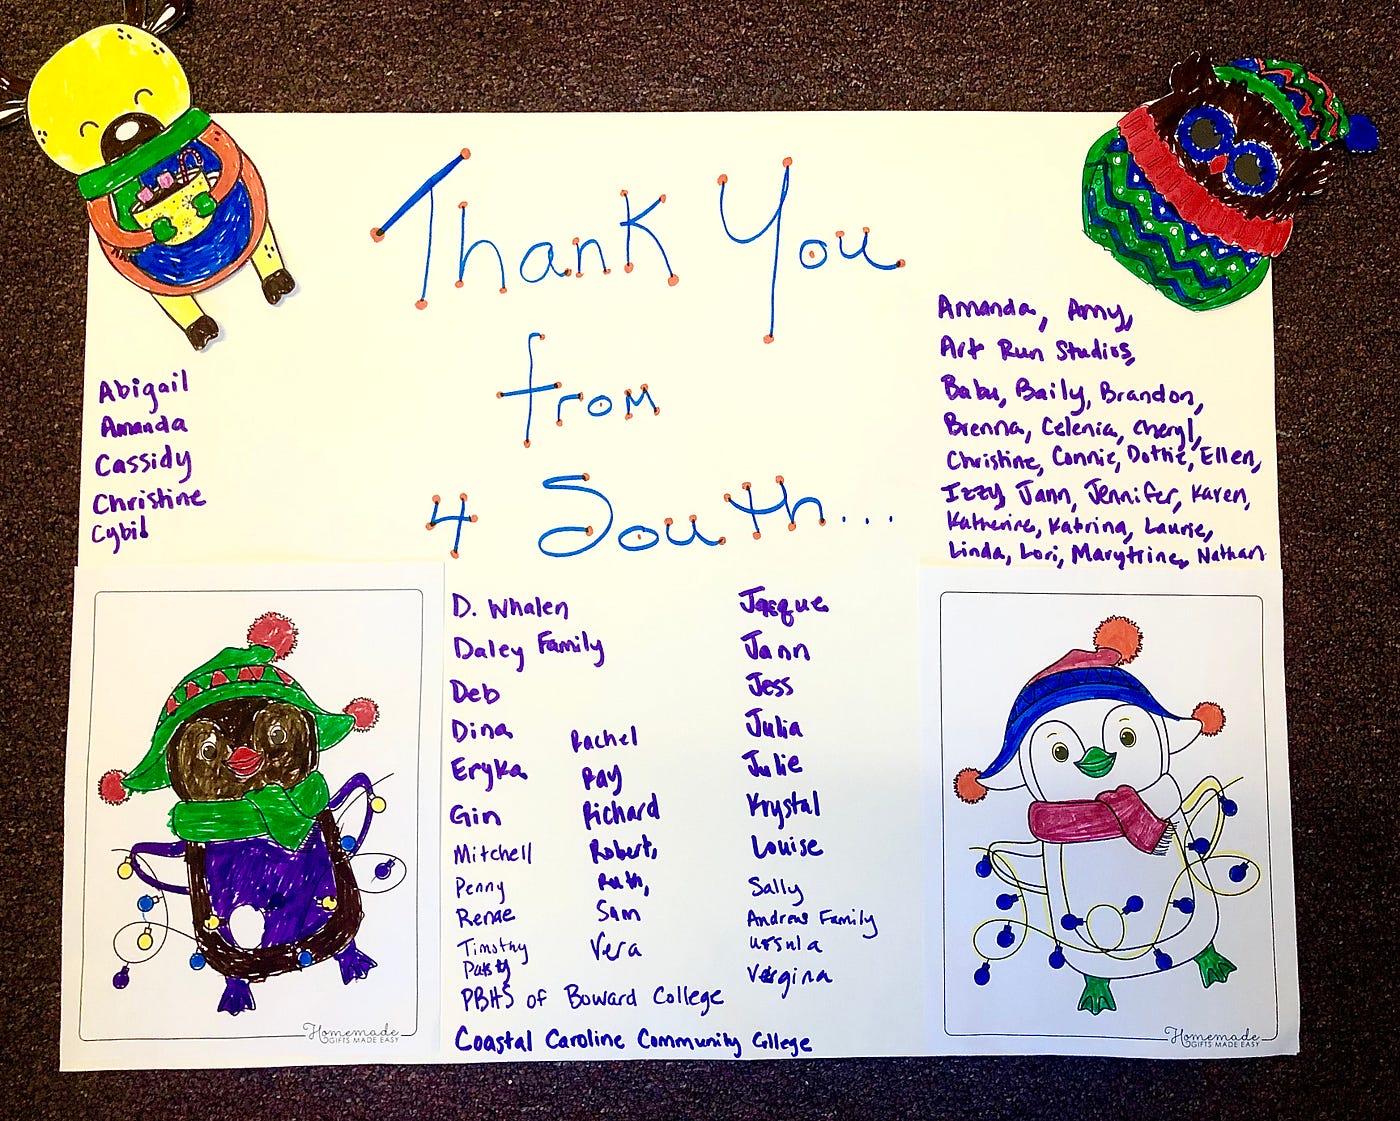 Thank You
from
4 South...
Abigail
Amanda
Cassidy
Christine
Cybil
Amanda, Amy,
Art Run Studios,
Babu, Baily, Brandon,
Brenna, Celenia, Cheryl,
Christine, Connie, Dottie, Ellen,
Izzy Jann, Jennifer, Karen,
Katherine, Katrina, Laurie,
Linda, Lori, Marytrine, Nathan
D. Whalen
Daley Family
Deb
Dina
Eryka
Gin
Mitchell
Penny
Renae
Timothy
Patsy
Rachel
Ray
Richard
Robert,
Ruth,
Sam
Vera
Jacque
Jann
Jess
Julia
Julie
Krystal
Louise
Sally
Andrews Family
Ursula
Vergina
PBHS of Boward College
Coastal Caroline Community College
Homemade
GIFTS MADE EASY
Homemade
GIFTS MADE EASY